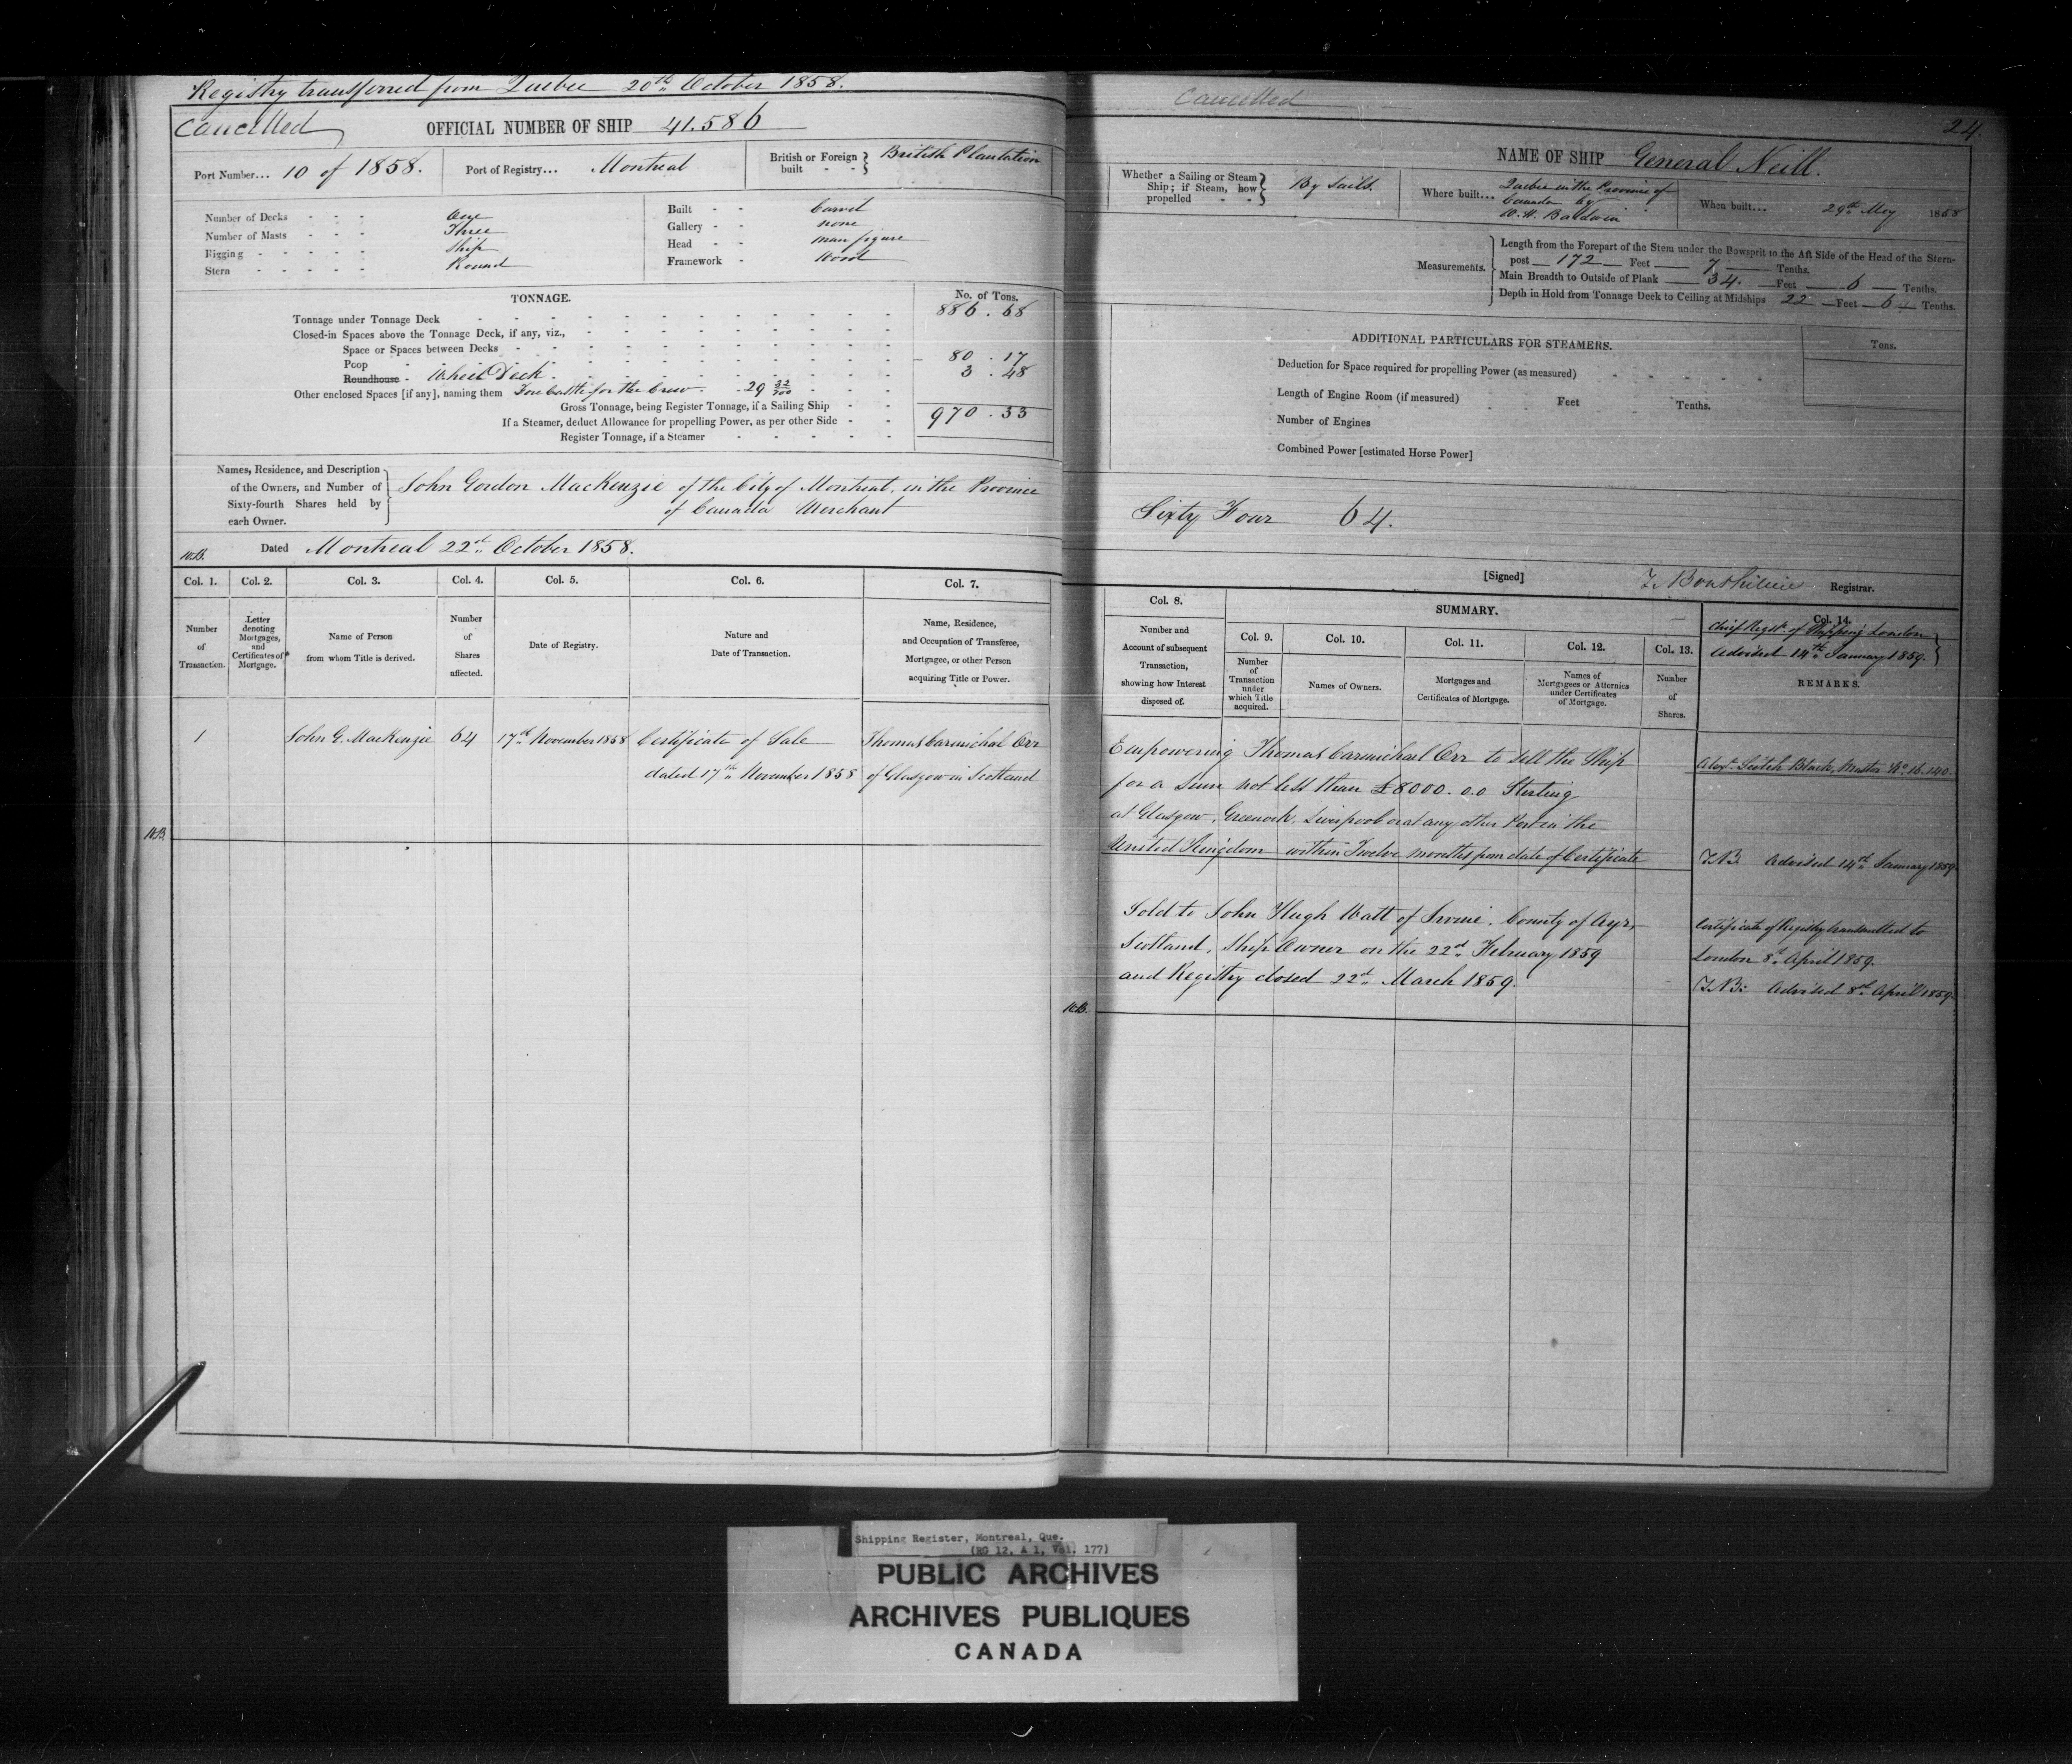 Registry transferred from Quebec 20th October 1858.
Cancelled
OFFICIAL NUMBER OF SHIP 41.586
Port Number... 10 of 1858.
Port of Registry... Montreal
British or Foreign built - - British Plantation
Number of Decks - - - One
Number of Masts - - - Three
Rigging - - - - - Ship
Stern - - - - - Round
Built - - Carvel
Gallery - - none
Head - - man figure
Framework - Wood
TONNAGE.
No. of Tons.
Tonnage under Tonnage Deck 886.68
Closed-in Spaces above the Tonnage Deck, if any, viz.,
Space or Spaces between Decks
Poop 80.17
Roundhouse - Wheel Deck 3.48
Other enclosed Spaces [if any], naming them Fore Castle for the Crew. 29 32/100
Gross Tonnage, being Register Tonnage, if a Sailing Ship 970.33
If a Steamer, deduct Allowance for propelling Power, as per other Side
Register Tonnage, if a Steamer
Names, Residence, and Description
of the Owners, and Number of
Sixty-fourth Shares held by
each Owner.
John Gordon MacKenzie of the City of Montreal, in the Province
of Canada Merchant
Dated Montreal 22nd October 1858.
Col. 1. Col. 2. Col. 3. Col. 4. Col. 5. Col. 6. Col. 7.
Number of Transaction.
Letter denoting Mortgages, and Certificates of Mortgage.
Name of Person from whom Title is derived.
Number of Shares affected.
Date of Registry.
Nature and Date of Transaction.
Name, Residence, and Occupation of Transferee, Mortgagee, or other Person acquiring Title or Power.
1 John G. MacKenzie 64 17th November 1858 Certificate of Sale Thomas Carmichal Orr
dated 17th November 1858 of Glasgow in Scotland
Cancelled
24.
NAME OF SHIP General Neill.
Whether a Sailing or Steam Ship; if Steam, how propelled - - By Sails.
Where built... Quebec in the Province of
Canada by
W. H. Baldwin
When built... 29th May 1858
Measurements.
Length from the Forepart of the Stem under the Bowsprit to the Aft Side of the Head of the Stern-
post 172 Feet 7 Tenths.
Main Breadth to Outside of Plank 34. Feet 6 Tenths.
Depth in Hold from Tonnage Deck to Ceiling at Midships 22 Feet 6 Tenths.
ADDITIONAL PARTICULARS FOR STEAMERS.
Tons.
Deduction for Space required for propelling Power (as measured)
Length of Engine Room (if measured) Feet Tenths.
Number of Engines
Combined Power [estimated Horse Power]
Sixty Four 64.
[Signed] Registrar.
Col. 8.
SUMMARY.
Col. 9. Col. 10. Col. 11. Col. 12. Col. 13. Col. 14.
Number and Account of subsequent Transaction, showing how Interest disposed of.
Number of Transaction under which Title acquired.
Names of Owners.
Mortgages and Certificates of Mortgage.
Names of Mortgagees or Attornies under Certificates of Mortgage.
Number of Shares.
Chief Regtr of Shipping London
Advised 14th January 1859.
REMARKS.
Empowering Thomas Carmichael Orr to sell the Ship
for a sum not less than £8000.0.0 Sterling
at Glasgow, Greenock, Liverpool or at any other Port in the
United Kingdom within Twelve months from date of Certificate
Alexr. Black, Master No. 16.140.
Advised 14th January 1859
Sold to John Hugh Watt of Irvine, County of Ayr,
Scotland, Ship Owner on the 22nd February 1859
and Registry closed 22nd March 1859.
Certificate of Registry transmitted to
London 8th April 1859.
Advised 8th April 1859.
Shipping Register, Montreal, Que.
(RG 12, A 1, Vol. 177)
PUBLIC ARCHIVES
ARCHIVES PUBLIQUES
CANADA